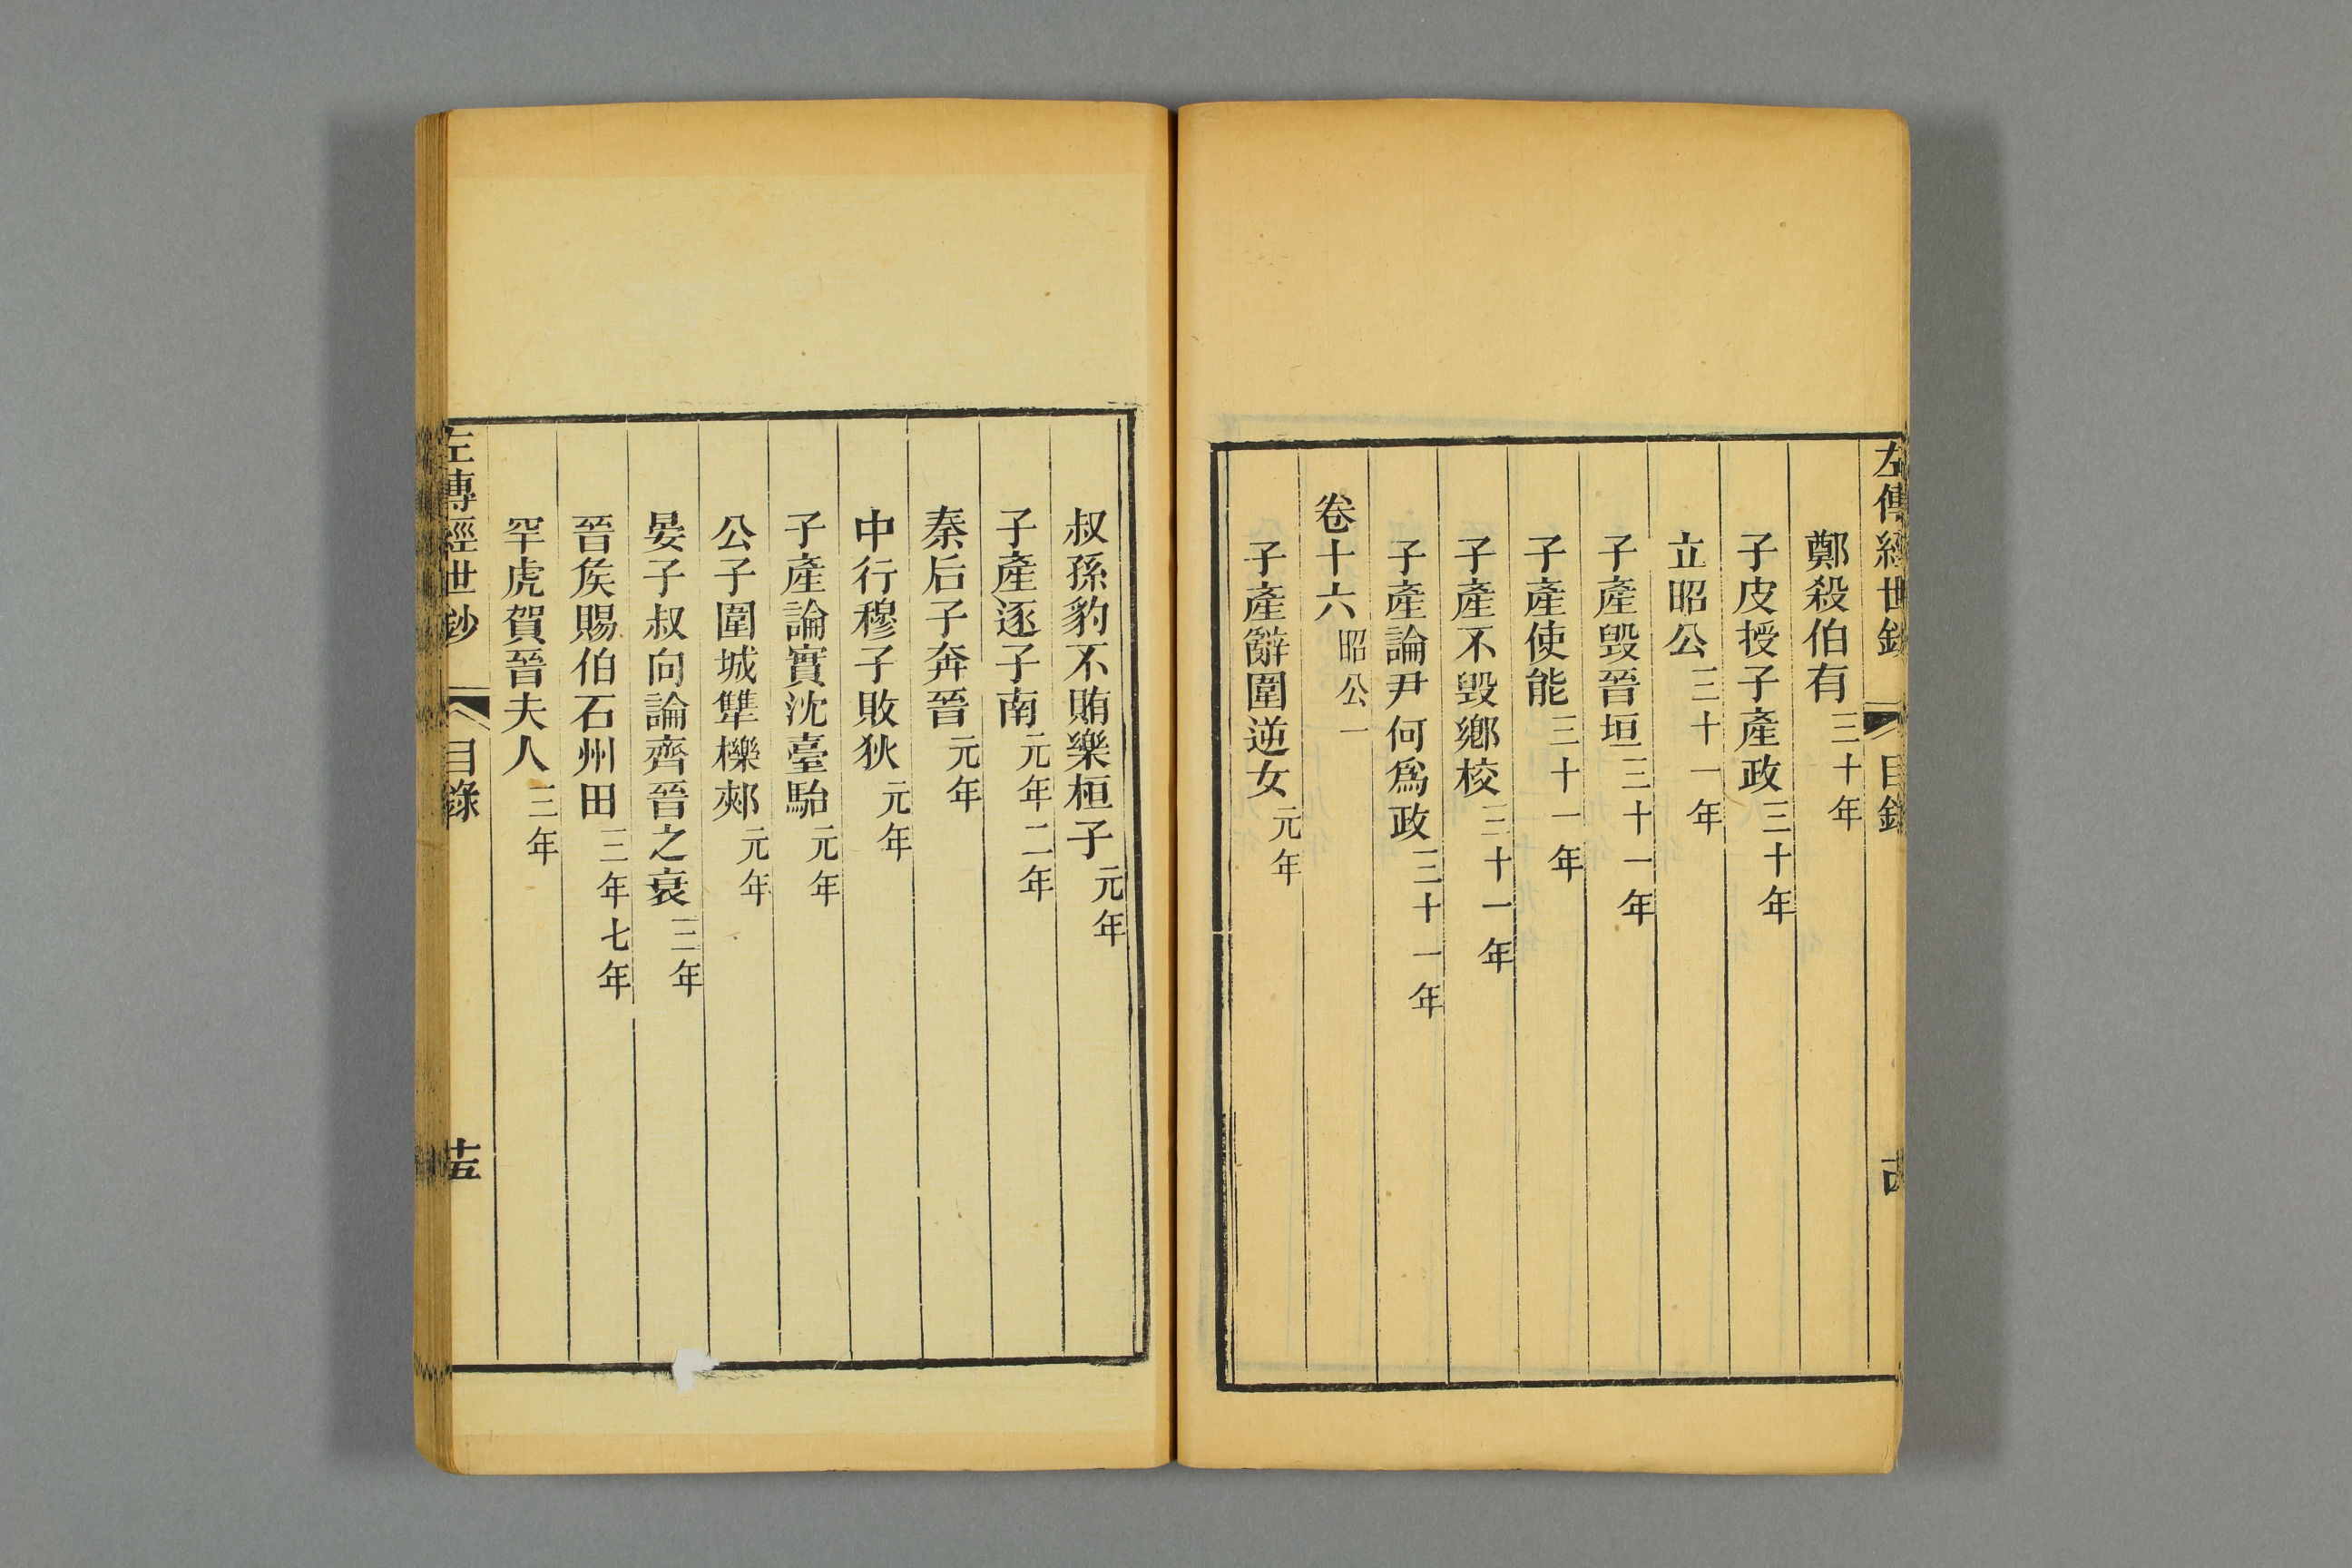 左傳經世鈔 目錄 十四
鄭殺伯有三十年
子皮授子產政三十年
立昭公三十一年
子產毀晉垣三十一年
子產使能三十一年
子產不毀鄉校三十一年
子產論尹何爲政三十一年
卷十六昭公一
子產辭圍逆女元年
叔孫豹不賄樂桓子元年
子產逐子南元年二年
秦后子奔晉元年
中行穆子敗狄元年
子產論實沈臺駘元年
公子圍城犨櫟郟元年
晏子叔向論齊晉之衰三年
晉矦賜伯石州田三年七年
罕虎賀晉夫人三年
左傳經世鈔 目錄 十五